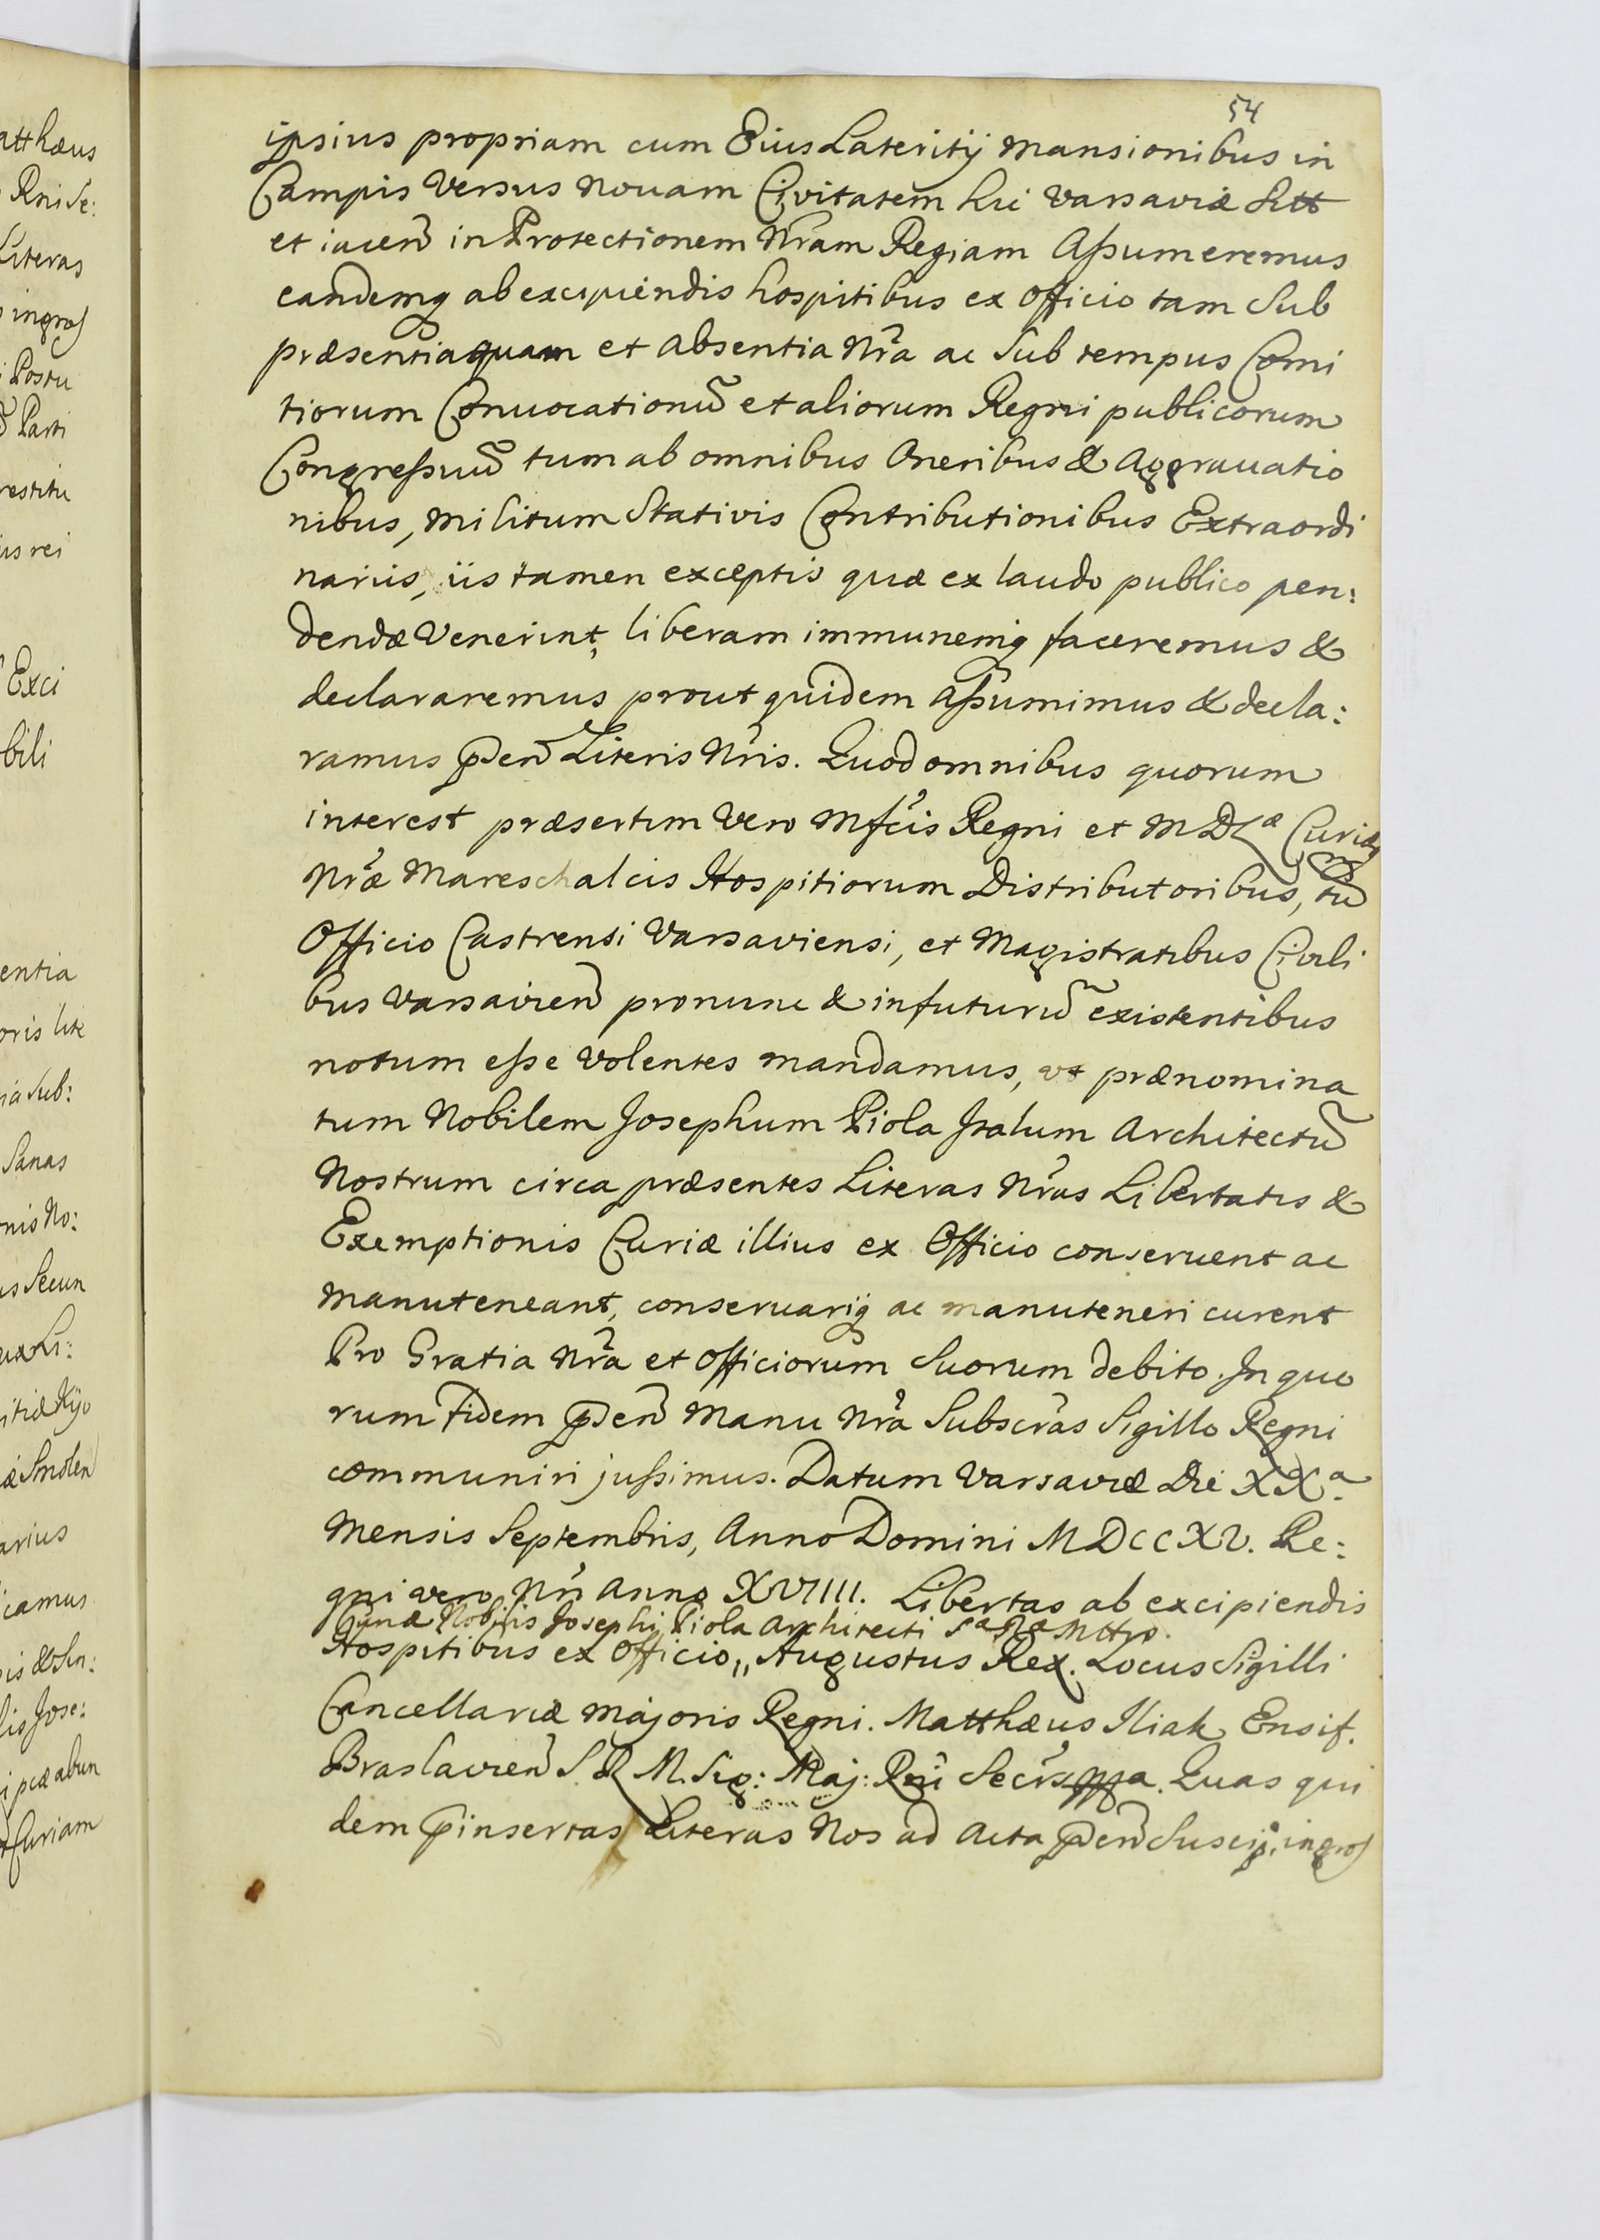 54
ipsius propriam cum Eius Lateritij Mansionibus in
Campis Versus Novam Civitatem hic Varsaviæ Sitt
et iacen̄ in Protectionem Nr̄am Regiam Aſsumeremus
eandemq ab excipiendis hospitibus ex Officio tam Sub
præsentia quam et absentia Nr̄a ac Sub tempus Comi
tiorum Convocationū et aliorum Regni publicorum
Congreſsuū tum ab omnibus Oneribus & Aggravatio
nibus, Militum Stativis Contributionibus Extraordi
nariis, iis tamen exceptis quæ ex laudo publico pen:
dendæ Venerint, liberam immunemq faceremus &
declararemus prout quidem aſsumimus & decla:
ramus p̄den̄ Literis Nr̄is. Quod omnibus quorum
interest præsertim Vero Mfcis Regni et M D L æ Curiæ
Nr̄æ Mareschalcis Hospitiorum Distributoribus, tū
Officio Castrensi Varsaviensi, et Magistratibus Civili
bus Varsavien̄ pro nunc & in futurū existentibus
notum eſse Volentes mandamus, ut prænomina
tum Nobilem Josephum Piola Italum Architectū
Nostrum circa præsentes Literas Nr̄as Libertatis &
Exemptionis Curiæ illius ex Officio conservent ac
Manuteneant, conservariq ac manuteneri curent
Pro Gratia Nr̄a et Officiorum Suorum debito. In quo
rum Fidem p̄den̄ Manu Nr̄a Subscr̄as Sigillo Regni
communiri juſsimus. Datum Varsaviæ Die XX a
Mensis Septembris, Anno Domini MDCCXV. Re:
gni vero Nr̄i Anno XVIIII. Libertas ab excipiendis
Nobilis Josephi Piola Architecti
Hospitibus ex Officio,, Augustus Rex. Locus Sigilli
Cancellariæ Majoris Regni. Matthæus Iliak Ensif.
Braslavien̄ S. R M. Sig: Maj: Rn̄i Secr̄s mppa. Quas qui
dem p̄insertas Literas Nos ad Acta p̄den̄ Suscip. ingros